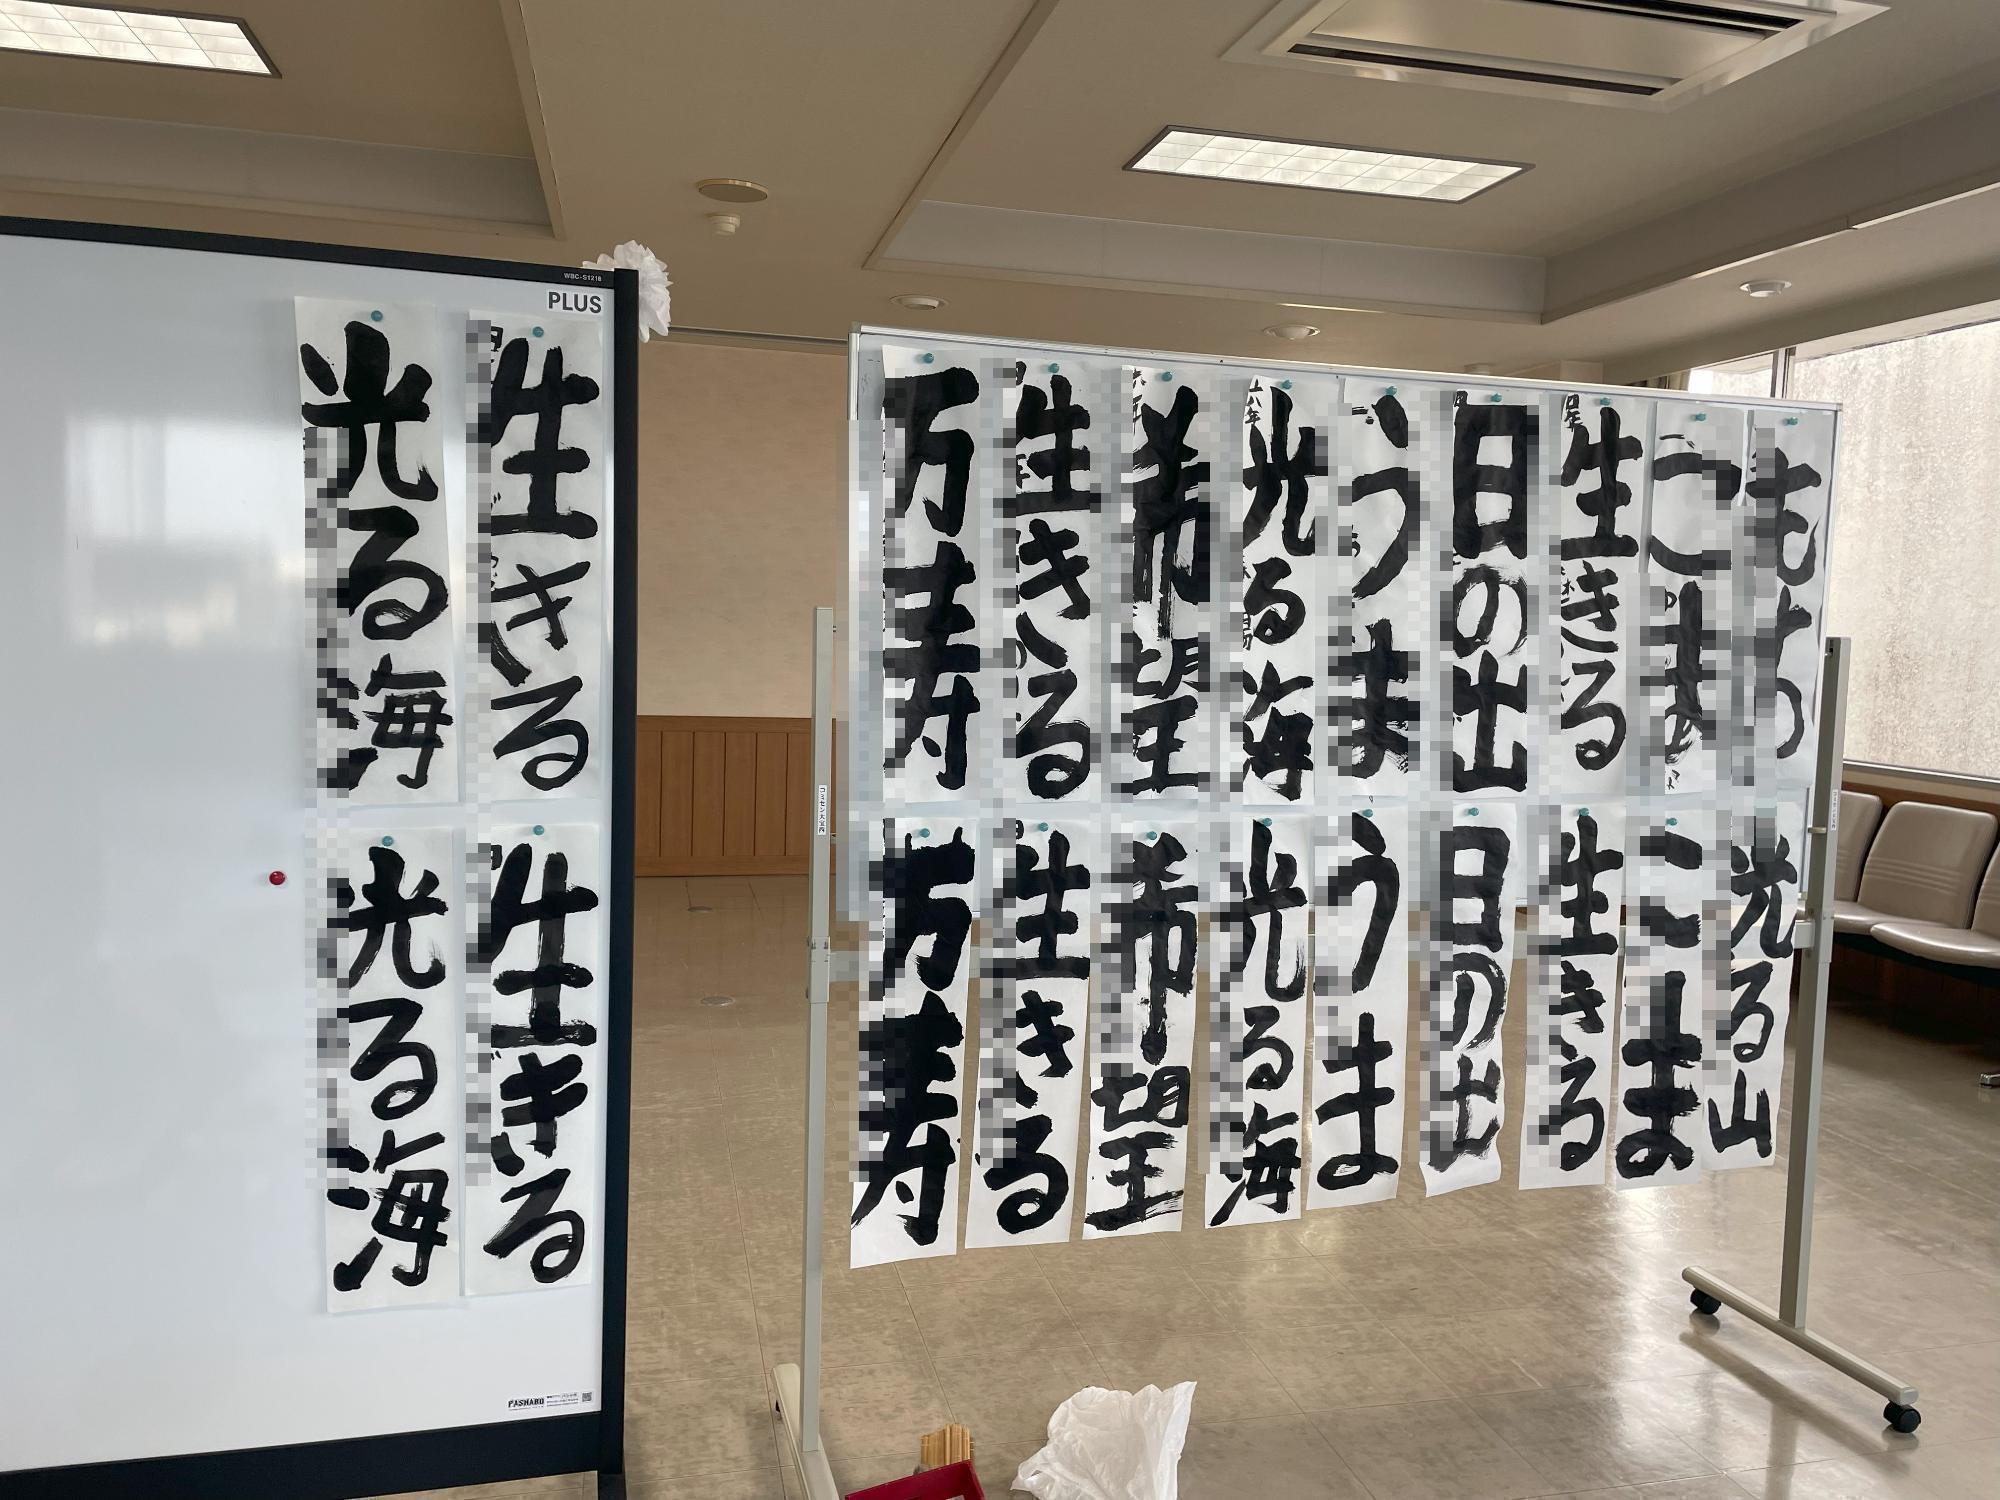 WBC-S1218
PLUS
生きる
光る海
生きる
光る海
PASHABO
もち
こま
生きる
日の出
うま
光る海
希望
生きる
万寿
光る山
こま
生きる
日の出
うま
光る海
希望
生きる
万寿
コミセン大宝西